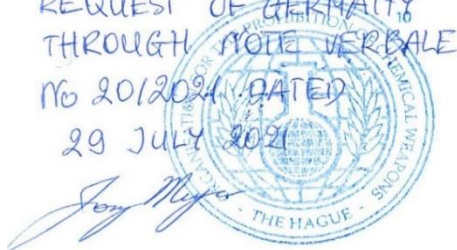 REQUEST OF GERMANY
THROUGH NOTE VERBALE
No 20/2021 DATED
29 JULY 2021
ORGANISATION FOR THE PROHIBITION OF CHEMICAL WEAPONS
THE HAGUE
10